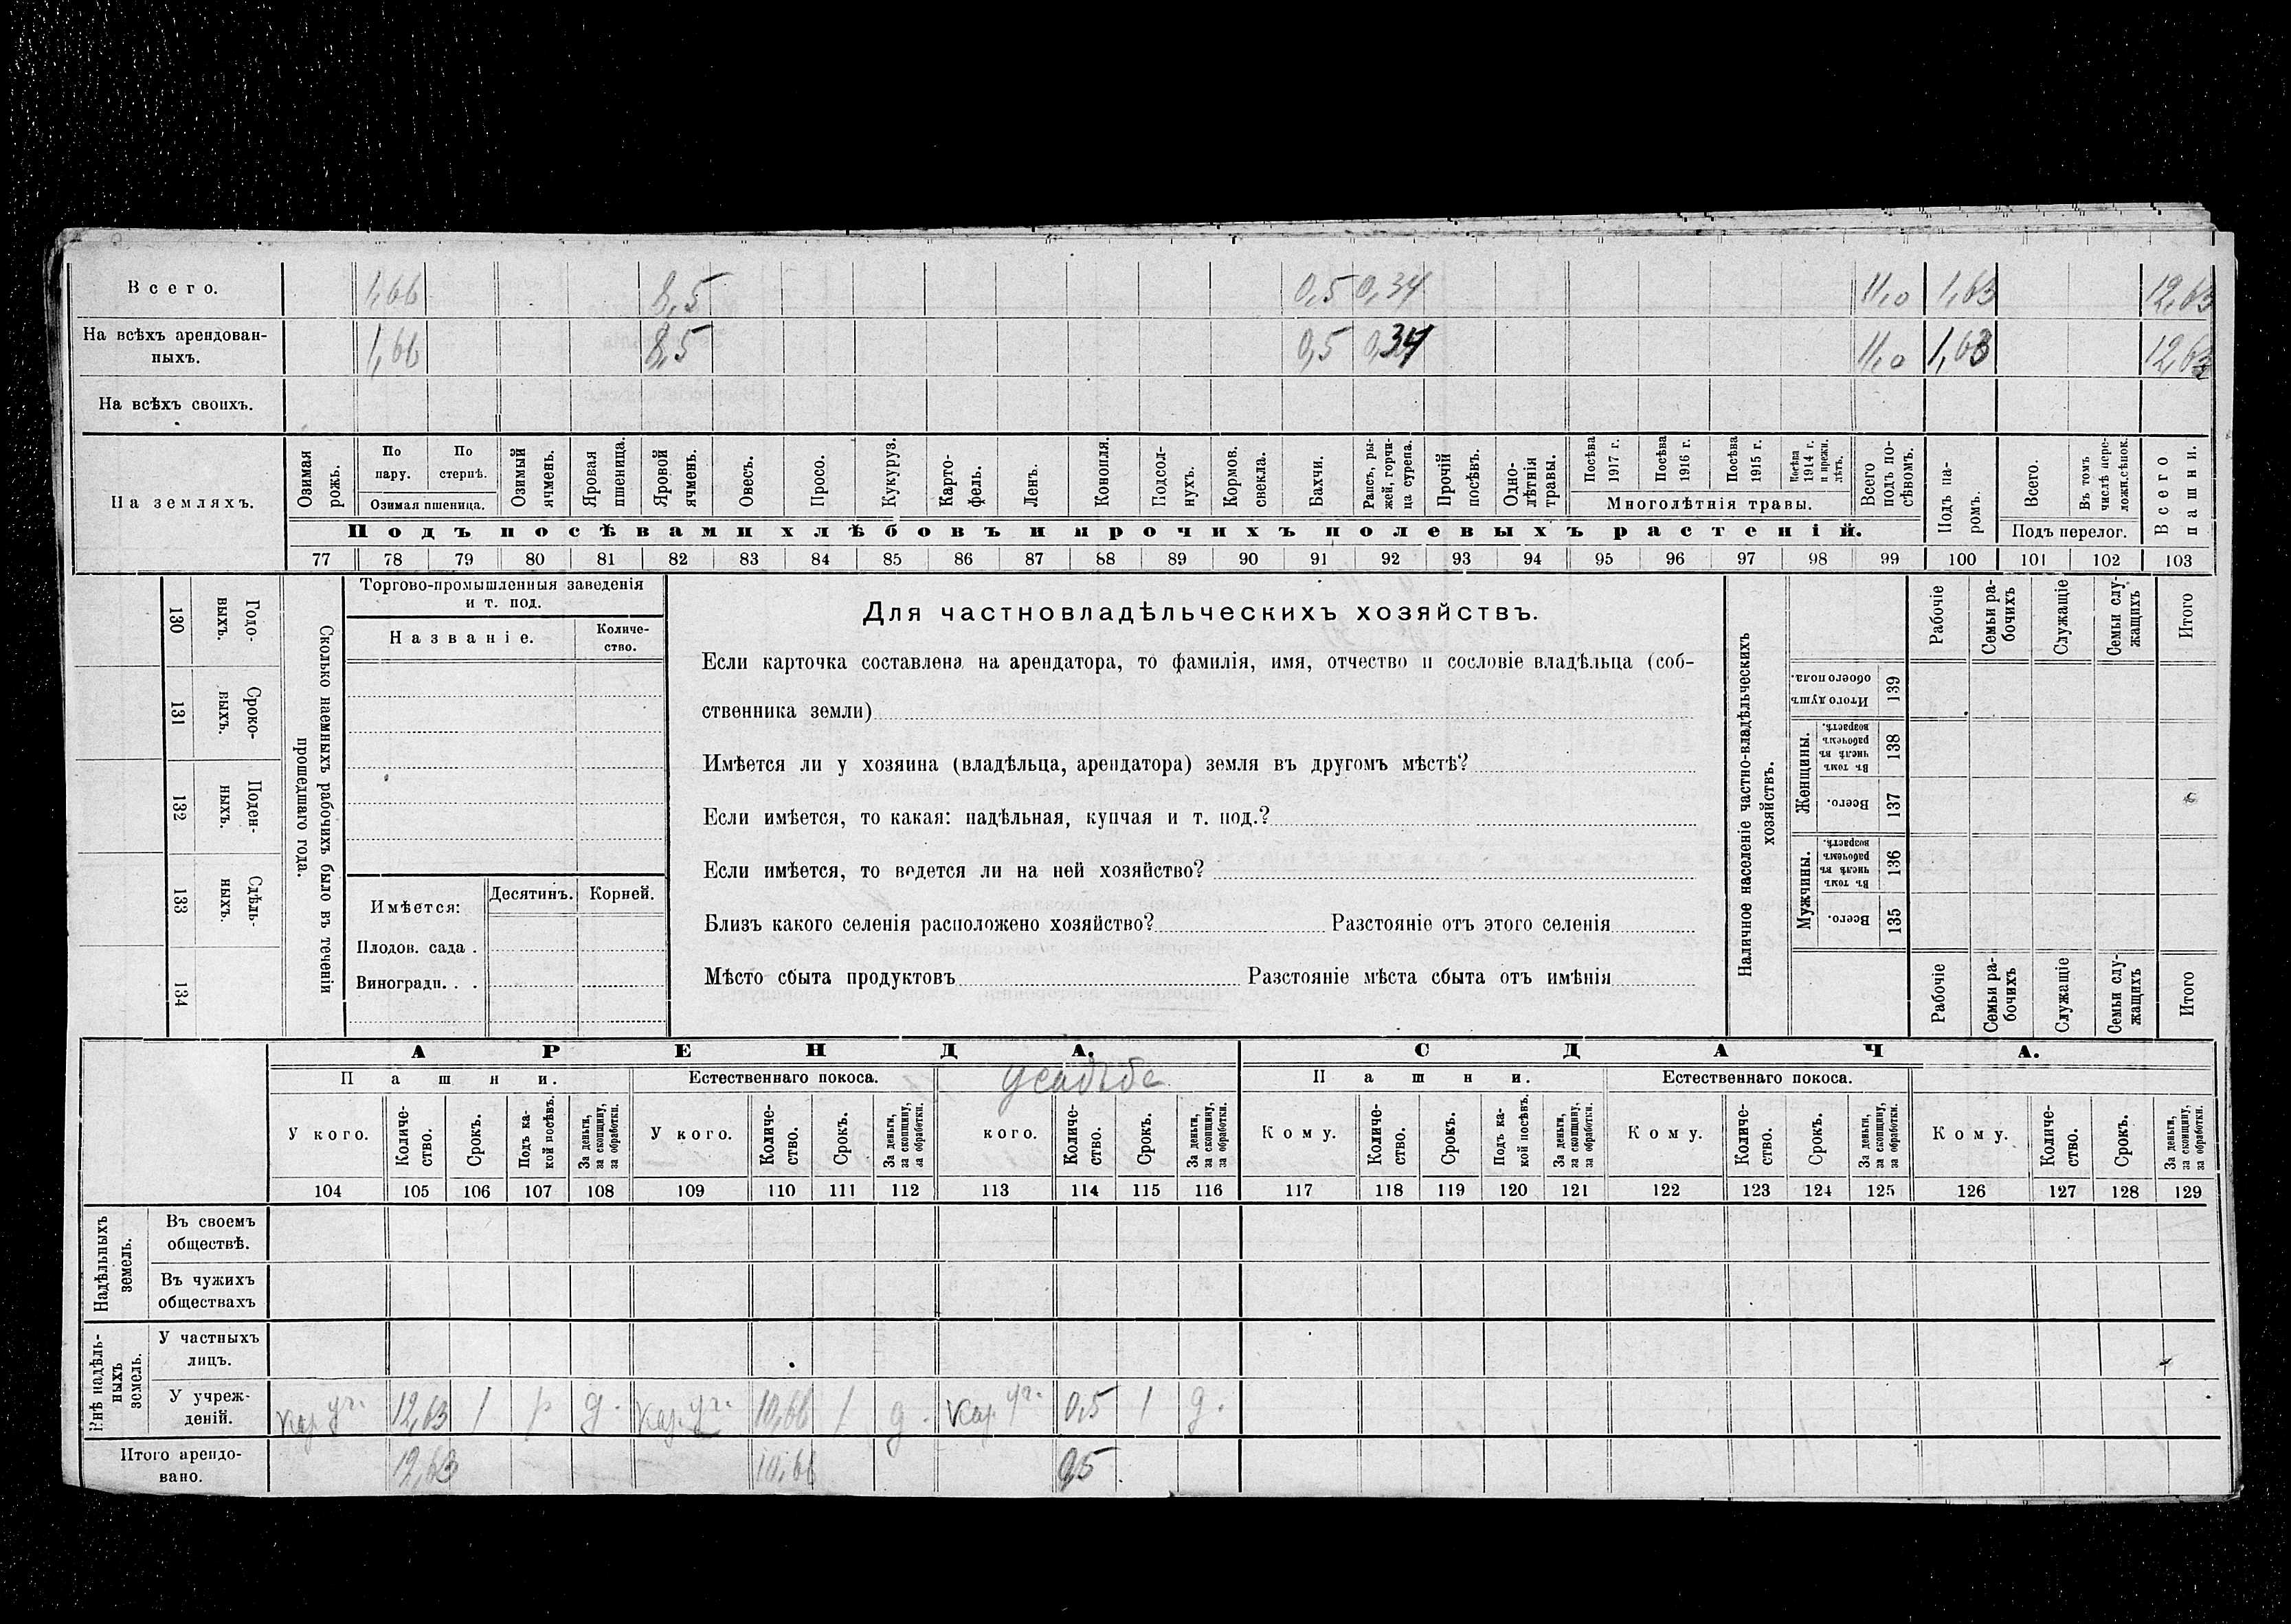 Всего. 1,66 8,5 0,5 0,34 11,0 1,63 12,63
На всѣхъ арендован-
ныхъ. 1,66 8,5 0,5 0,34 11,0 1,63 12,63
На всѣхъ своихъ.
На земляхъ.
Озимая рожь.
По пару.
По стернѣ.
Озимая пшеница.
Озимый ячмень.
Яровая пшеница.
Яровой ячмень.
Овесъ.
Просо.
Кукуруз.
Карто-
фель.
Ленъ.
Конопля.
Подсол-
нухъ.
Кормов. свекла.
Бахчи.
Рапсъ, ры-
жей, горчи-
ца сурепа.
Прочій посѣвъ.
Одно-
лѣтнія травы.
Посѣва 1917 г.
Посѣва 1916 г.
Посѣва 1915 г.
Посѣва 1914 г. и прежн. лѣтъ.
Многолѣтнія травы.
Всего подъ по-
сѣвомъ.
Подъ па-
ромъ.
Всего.
Въ томъ числѣ пере-
ложн.сѣнок.
Подъ перелог.
Всего пашни.
Подъ посѣвами хлѣбовъ и прочихъ полевыхъ растеній.
77 78 79 80 81 82 83 84 85 86 87 88 89 90 91 92 93 94 95 96 97 98 99 100 101 102 103
130 Годо-
выхъ.
131 Сроко-
выхъ.
132 Поден-
ныхъ.
133 Сдѣль-
ныхъ.
134
Сколько наемныхъ рабочихъ было въ теченіи
прошедшаго года.
Торгово-промышленныя заведенія
и т. под.
Названіе.
Количе-
ство.
Имѣется: Десятинъ. Корней.
Плодов. сада .
Виноградн. . .
Для частновладѣльческихъ хозяйствъ.
Если карточка составлена на арендатора, то фамилія, имя, отчество и сословіе владѣльца (соб-
ственника земли)
Имѣется ли у хозяина (владѣльца, арендатора) земля въ другомъ мѣстѣ?
Если имѣется, то какая: надѣльная, купчая и т. под.?
Если имѣется, то ведется ли на ней хозяйство?
Близъ какого селенія расположено хозяйство? Разстояніе отъ этого селенія
Мѣсто сбыта продуктовъ Разстояніе мѣста сбыта отъ имѣнія
Наличное населеніе частно-владѣльческихъ
хозяйствъ.
Рабочіе
Семьи ра-
бочихъ
Служащіе
Семьи слу-
жащихъ
Итого
Итого душъ
обоего пола. 139
Женщины.
Въ томъ числѣ въ рабочемъ возрастѣ. 138
Всего. 137
Мужчины.
Въ томъ числѣ въ рабочемъ возрастѣ. 136
Всего. 135
Рабочіе
Семьи ра-
бочихъ
Служащіе
Семьи слу-
жащихъ
Итого
АРЕНДА. СДАЧА.
Пашни. Естественнаго покоса. Усадьбе Пашни. Естественнаго покоса.
У кого.
Количе-
ство.
Срокъ.
Подъ ка-
кой посѣвъ.
За деньги,
за скопщину,
за обработки.
У кого.
Количе-
ство.
Срокъ.
За деньги,
за скопщину,
за обработки.
кого.
Количе-
ство.
Срокъ.
За деньги,
за скопщину,
за обработки.
Кому.
Количе-
ство.
Срокъ.
Подъ ка-
кой посѣвъ.
За деньги,
за скопщину,
за обработки.
Кому.
Количе-
ство.
Срокъ.
За деньги,
за скопщину,
за обработки.
Кому.
Количе-
ство.
Срокъ.
За деньги,
за скопщину,
за обработки.
104 105 106 107 108 109 110 111 112 113 114 115 116 117 118 119 120 121 122 123 124 125 126 127 128 129
Надѣльныхъ
земель.
Въ своемъ
обществѣ.
Въ чужихъ
обществахъ
Внѣ надѣль-
ныхъ
земель.
У частныхъ
лицъ.
У учреж-
деній. каз. уч. 12,63 1 р д. каз. уч. 10,66 1 д. каз. уч. 0,5 1 д.
Итого арендо-
вано. 12,63 10,66 0,5